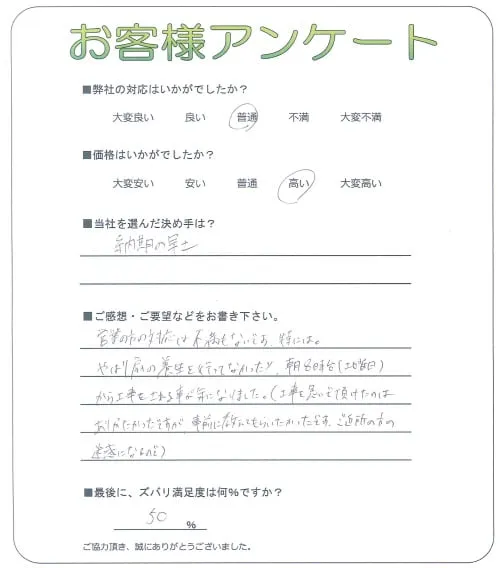 お客様アンケート
■弊社の対応はいかがでしたか？
大変良い 良い 普通 不満 大変不満
■価格はいかがでしたか？
大変安い 安い 普通 高い 大変高い
■当社を選んだ決め手は？
納期の早さ
■ご感想・ご要望などをお書き下さい。
営業の方の対応は不満もないです、特には。
やはり の養生を行ってなかったり、朝8時台(土曜日)
から工事をされる事が気になりました。(工事を急いで頂けたのは
ありがたかったですが、事前に教えてもらいたかったです、ご近所の方の
迷惑になるので)
■最後に、ズバリ満足度は何%ですか？
50 %
ご協力頂き、誠にありがとうございました。